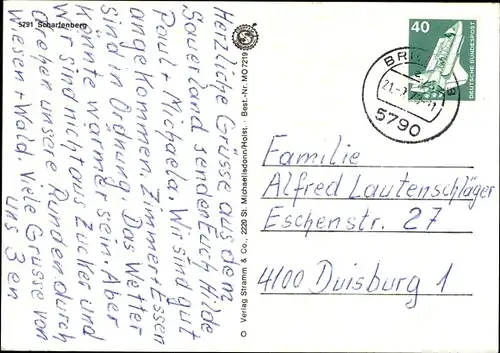 5791 Scharfenberg
Herzliche Grüsse aus dem
Sauerland senden Euch Hilde
Paul + Michaela. Wir sind gut
angekommen. Zimmer + Essen
sind in Ordnung. Das Wetter
könnte wärmer sein. Aber
wir sind nicht aus Zucker und
drehen unsere Runden durch
Wiesen + Wald. Viele Grüsse von
uns 3en
© Verlag Stramm & Co., 2220 St. Michaelisdonn/Holst. · Best.-Nr. MO 7219
40
DEUTSCHE BUNDESPOST
5790
Familie
Alfred Lautenschläger
Eschenstr. 27
4100 Duisburg 1